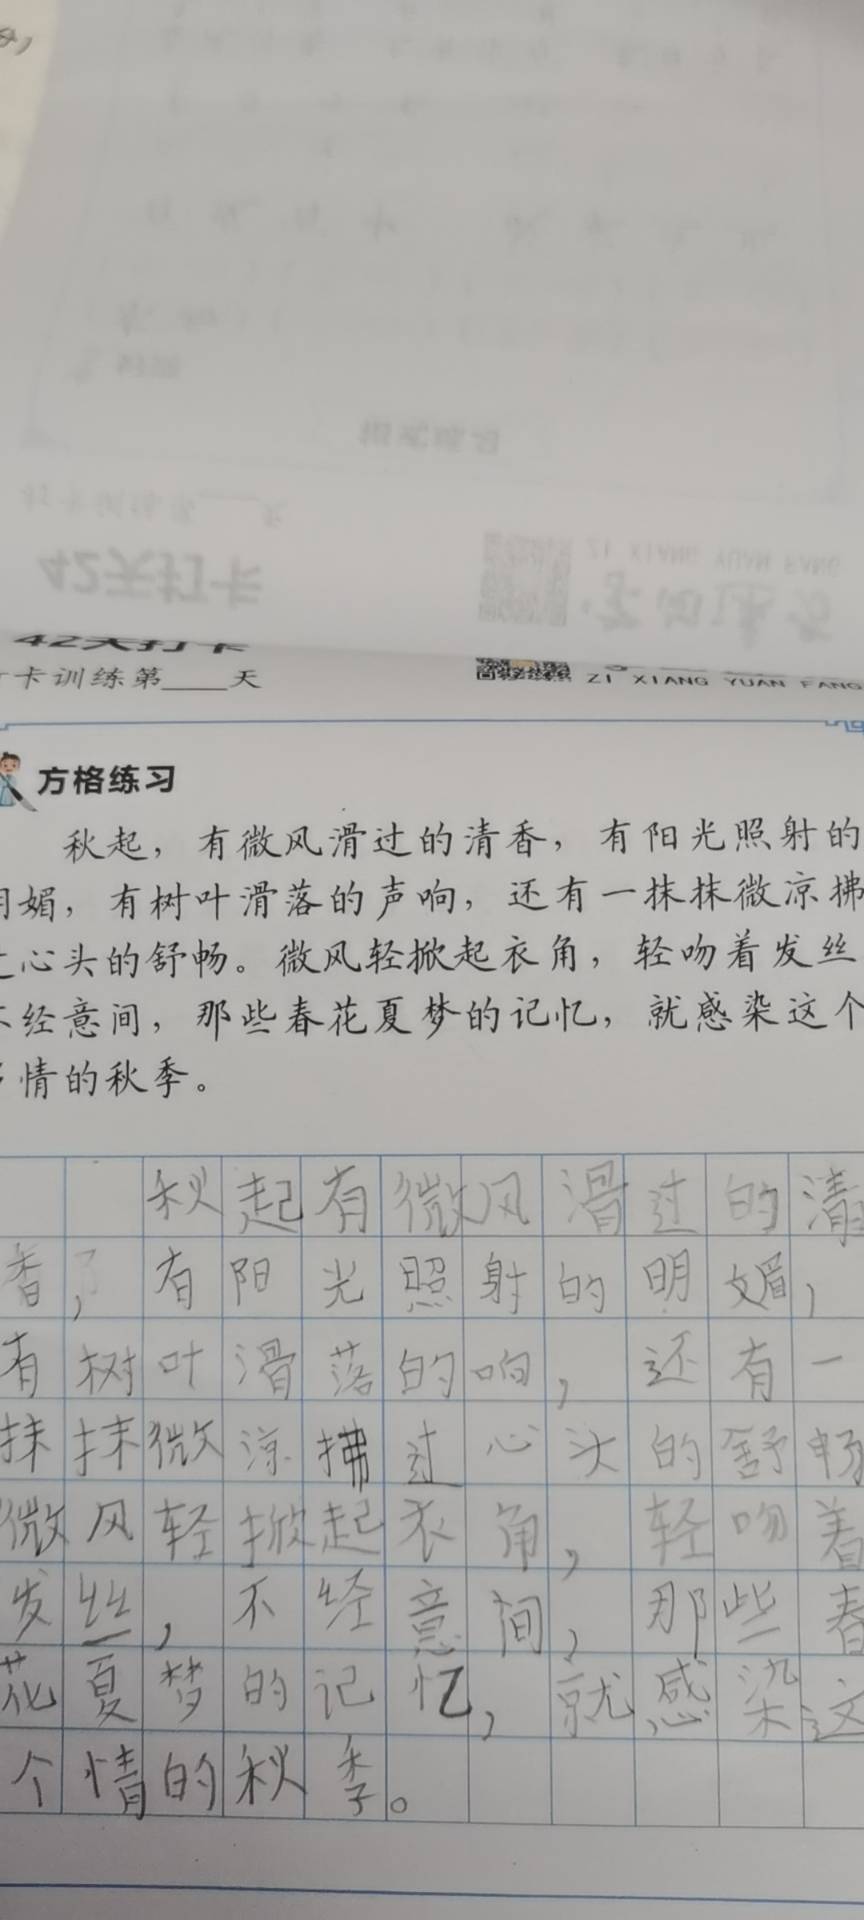 42天打卡
卡训练第____天
ZI XIANG YUAN FANG
42天打卡
卡训练第____天
ZI XIANG YUAN FANG
方格练习
秋起，有微风滑过的清香，有阳光照射的
明媚，有树叶滑落的声响，还有一抹抹微凉拂
过心头的舒畅。微风轻掀起衣角，轻吻着发丝
不经意间，那些春花夏梦的记忆，就感染这个
多情的秋季。
秋起有微风滑过的清
香，有阳光照射的明媚，
有树叶滑落的响，还有一
抹抹微凉拂过心头的舒畅
微风轻掀起衣角，轻吻着
发丝，不经意间，那些春
花夏梦的记忆，就感染这
个情的秋季。